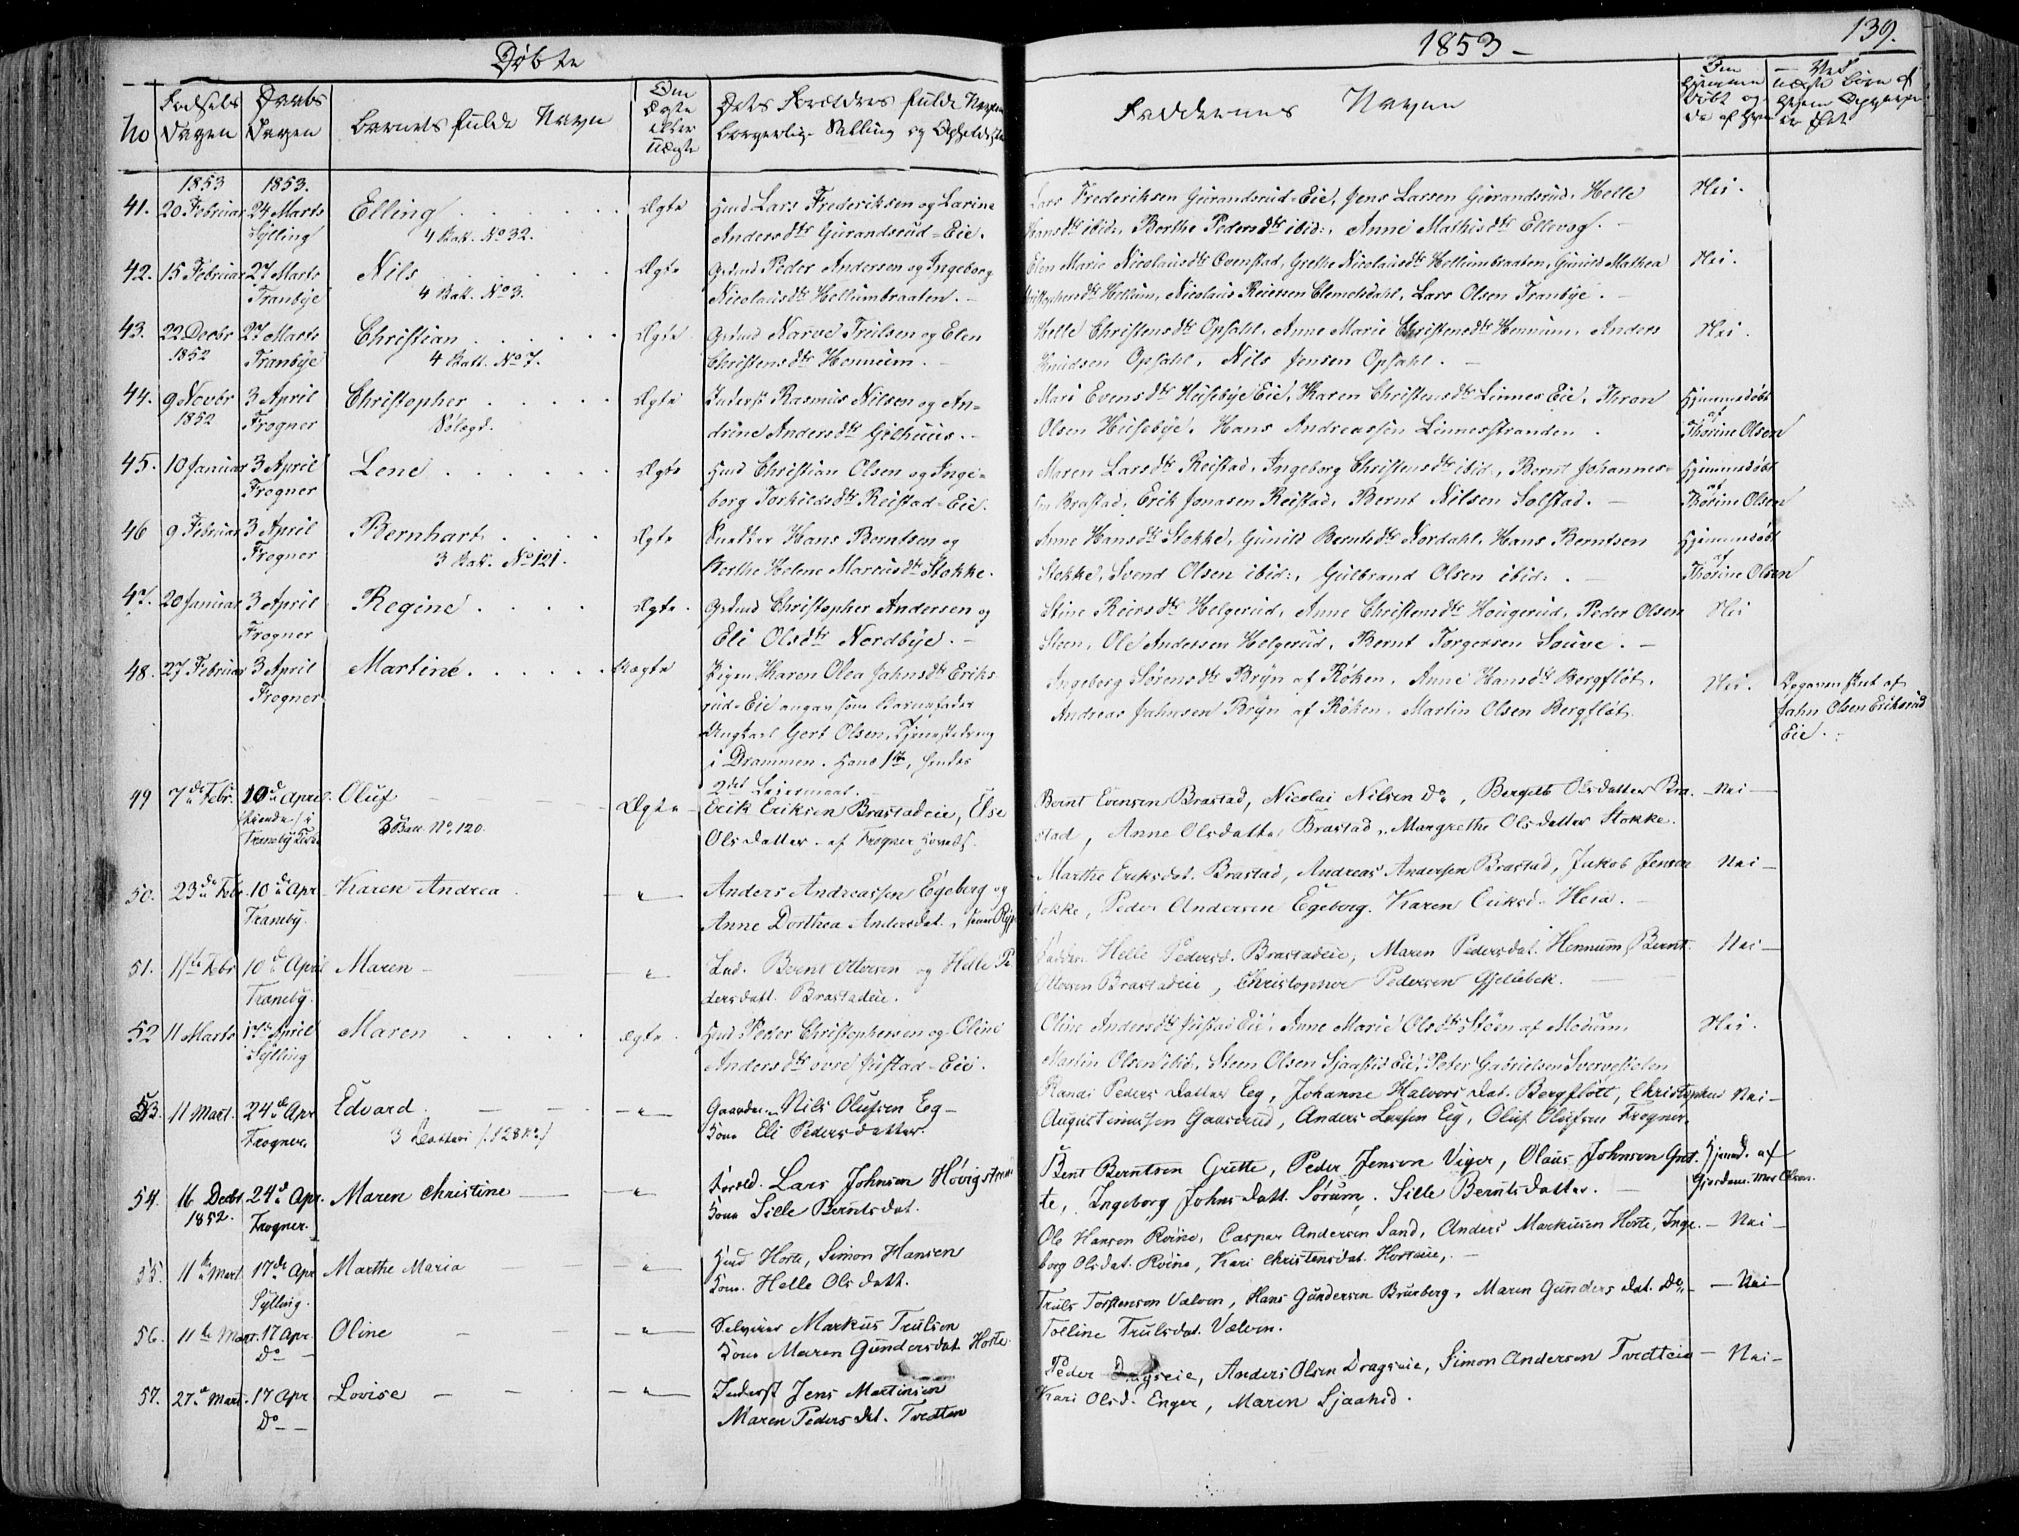 Døbte
1853 –
139.
No
Fødsels Dagen
Daabs Dagen
Barnets fulde Navn
Om Ægte eller Uægte
Dets Forældres fulde Navne
borgerlig Stilling og Opholdsted
Faddernes Navne
1853 1853.
41. 20 Februar 24 Marts Sylling Elling Ægte Husmd Lars Frederiksen og Larine
4 Batt. No 32. Andersdtr Gurandsrud-Eie.
Lars Frederiksen Gurandsrud-Eie, Jens Larsen Gurandsrud, Helle Nei.
Hansdtr ibid:, Berthe Pedersdtr ibid:, Anne Mathisdtr Ellevog. –
42. 15 Februar 27 Marts Tranbye Nils Ægte Grdmd Peder Andersen og Ingeborg
4 Batt. No 3. Nicolausdtr Hellumbraaten. –
Elen Marie Nicolausdtr Ovenstad, Grethe Nicolausdtr Hellumbraaten, Gunild Mathea Nei.
Christophersdtr Hellum, Nicolaus Reiersen Clemetsdahl, Lars Olsen Tranbye. –
43. 22 Decbr 1852 27 Marts Tranbye Christian Ægte Grdmd Narve Trulsen og Elen
4 Batt. No 7. Christensdtr Hennum. –
Helle Christensdtr Opsahl, Anne Marie Christensdtr Hennum, Anders Nei.
Knudsen Opsahl, Nils Jensen Opsahl. –
44. 9 Novbr 1852 3 April Frogner Christopher Ægte Inderst Rasmus Nilsen og An-
Sølægd. drine Andersdtr Gilhuus. –
Mari Evensdtr Husebye Eie, Karen Christensdtr Linnes Eie, Thron Hjemmedøbt af
Olsen Husebye, Hans Andreassen Linnesstranden. Thorine Olsen
45. 10 Januar 3 April Frogner Lene Ægte Husmd Christian Olsen og Inge-
borg Torkildsdtr Reistad-Eie.
Maren Larsdtr Reistad, Ingeborg Christensdtr ibid:, Bernt Johannes- Hjemmedøbt af
sen Brastad, Erik Jonasen Reistad, Bernt Nilsen Solstad. – Thorine Olsen
46 9 Februar 3 April Frogner Bernhart Ægte Hans Berntsen og
3 Batt. No 121. Berthe Helene Mariusdtr Stokke.
Anne Hansdtr Stokke, Gunild Berntsdtr Nordahl, Hans Berntsen Hjemmedøbt af
Stokke, Svend Olsen ibid:, Gulbrand Olsen ibid:. – Thorine Olsen
47. 20 Januar 3 April Frogner Regine Ægte. Grdmd Christopher Andersen og
Eli Olsdtr Nordbye. –
Stine Reiersdtr Helgerud, Anne Christensdtr Hougerud, Peder Olsen Nei
Steen, Ole Andersen Helgerud, Bernt Torgersen Souve. –
48. 27 Februar 3 April Frogner Martine Uægte Pigen Karen Olea Jahnsdtr Eriks-
rud-Eie angav som Barnefader
Ungkarl Gort Olsen, Tjenestedreng
i Drammen. Hans 1ste, hendes
2det Leiermaal.
Ingeborg Sørensdtr Bryn af Røken, Anne Hansdtr Bergfløt, Nei.
Andreas Jahnsen Bryn af Røken, Martin Olsen Bergfløt.
Begjæren skeet af
Jahn Olsen Eriksrud
Eie.
49 7de Febr. 10de April Tranby Kirke Oluf Ægte Erik Eriksen Brastadeie, Else
3 Batt No. 120. Olsdatter af Frogner Hoveds.
Bernt Evensen Brastad, Nicolai Nilsen do, Bergete Olsdatter Bra- Nei –
stad, Anne Olsdatter Brastad, Margrethe Olsdatter Stokke.
50. 23de Febr. 10de Apr Tranby. Karen Andrea – " – Anders Andreassen Egeberg og
Anne Dorthea Andersdat.
Marthe Eriksdat. Brastad, Andreas Andersen Brastad, Jakob Jensen Nei –
Stokke, Peder Andersen Egeberg. Karen Eriksd. Heia. –
51. 11te Febr 10de April Tranby. Maren – " Ind. Bernt Ottersen og Helle Pe-
dersdatt. Brastadeie.
Fadder. Helle Pedersd. Brastadeie, Maren Pedersdat. Hennum, Bernt Nei –
Ottersen Brastadeie, Christopher Pedersen Gjellebek.
52 11 Marts 17de April Sylling Maren Ægte. Husmd Peder Christophersen og Oline
Andersdtr øvre Justad-Eie.
Oline Andersdtr Justad Eie, Anne Marie Olsdtr Støen af Modum, Nei.
Martin Olsen ibid:, Steen Olsen Sjaastad Eie, Peter Gabrielsen Svervestolen
53. 11 Mart. 24de Apr Frogner. Edvard – " – Gaardm. Nils Olufsen Eeg –
3 Batteri /: 128 No :/ Kone Eli Pedersdatter.
Randi Peders datter Eeg, Johanne Halvorsdat. Bergfløtt, Christopher Nei –
Augustinussen Gaasrud, Anders Larsen Eeg, Oluf Olufsen Frogner.
54. 16 Decbr 1852. 24de Apr. Frogner. Maren Christine – " Lars Johnsen Høvigstrand
Kone Sille Berntsdat.
Bent Berntsen Grette, Peder Jensen Viger, Olaus Johnsen Gret- Hjemd. af
te, Ingeborg Johnsdatt. Sørum, Sille Berntsdatter. – Gjordem. Mor Olsen.
55. 11te Mart 17de Apr Sylling. Marthe Maria – " – Husmd Horte, Simon Hansen
Kone. Helle Olsdatt.
Ole Hansen Røine, Casper Andersen Sand, Anders Markusen Horte, Inge- – Nei –
borg Olsdat. Røine, Kari Christensdat. Horteie, –
56. 11te Mars. 17 Apr. Do – Oline – " – Selveier Markus Trulsen
Kone Maren Gundersdat. Horte.
Truls Torstensen Vælven, Hans Gundersen Brunberg, Maren Gundersdat. Do, – Nei –
Tolline Trulsdat. Vælven.
57. 27de Mart. 17 Apr. Do – Lovise – " – Inderst Jens Martinsen
Maren Peders dat. Tvedten
Peder Dragseie, Anders Olsen Dragseie, Simon Andersen Tvedteia – Nei –
Kari Olsd. Enger, Maren Sjaastad.